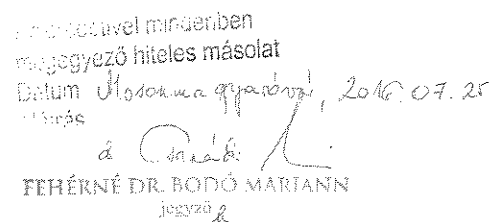 mindenben
megegyező hiteles másolat
Dátum Mosonmagyaróvár, 2016. 07. 25
Aláírás
FEHÉRNÉ DR. BODÓ MARIANN
jegyző